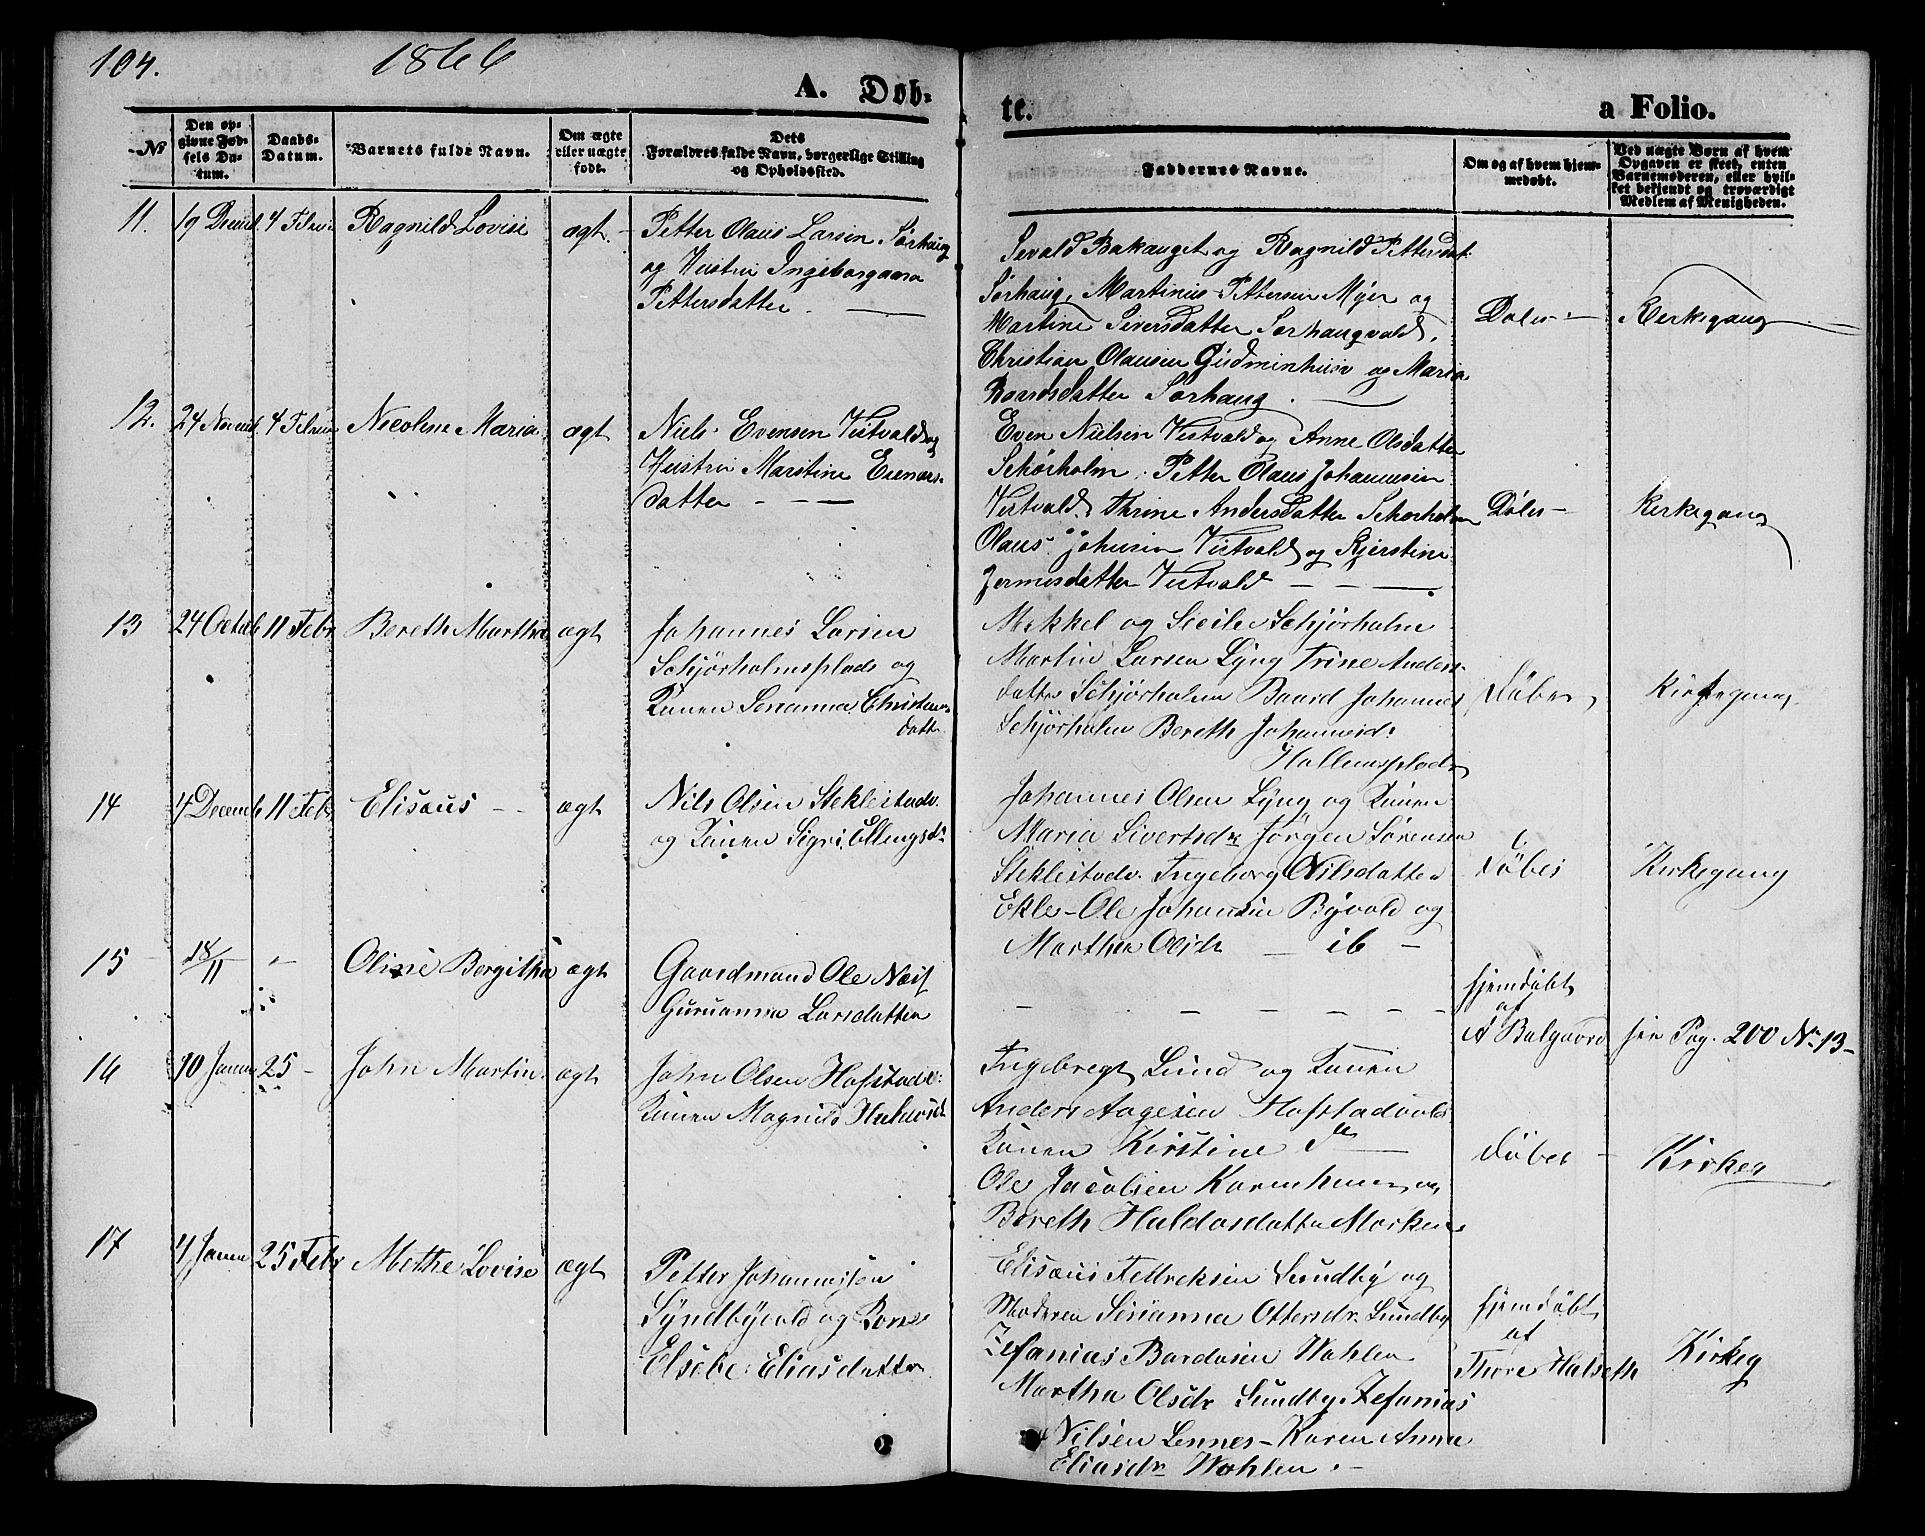 104.
1866
A. Døb-
te.
a Folio.
No
Den op-
givne Fød-
sels Da-
tum.
Daabs-
Datum.
Barnets fulde Navn.
Om ægte
eller uægte
født.
Dets
Forældres fulde Navn, borgerlige Stilling
og Opholdssted.
Faddernes Navne.
Om og af hvem hjem-
medøbt.
Ved uægte Børn af hvem
Opgaven er skeet, enten
Barnemoderen, eller hvil-
ket bekjendt og troværdigt
Medlem af Menigheden.
11.
19 Decemb.
4 Februar
Ragnild Lovise
ægt.
Petter Olaus Larsen Sørhaug
og Hustru Ingeborganna
Pettersdatter.
Sevald Bakauget og Ragnild Pettersdat
Sørhaug, Martinus Pettersen Myer og
Martine Siversdatter Sørhaugvald,
Christian Olausen Gudminhusv og Maria
Baardsdatter Sørhaug.
Døbes
Kerkegang
12.
24 Novemb.
4 Februar
Nicoline Maria
ægt
Niels Evensen Vistvald og
Hustru Marstine Eenars-
datter
Even Nielsen Vestvald og Anne Olsdatter
Schørholm, Petter Olaus Johannesen
Vestvald, Thrine Andersdatter Schørholm
Olaus Johnsen Vistvald og Kjerstine
Jermusdatter Vistvald
Døbes
Kerkegang
13
24 Octob
11 Febr
Bereth Martha
ægt
Johannes Larsen
Schjørholmsplads og
Konen Serianna Christens
datte
Mikkel og Secile Schjørholm
Martin Larsen Lyng Trine Anders-
datter Schjørholm Baard Johannes
Schjørholm Bereth Johannesd:
Hallemsplads
Døbes
Kirkegang
14
4 Decemb
11 Feb
Elisæus
ægt
Nils Olsen Steklestadv.
og Konen Sigri Ellingsdr
Johannes Olsen Lyng og Konen
Maria Sivertsdr Jørgen Sørensen
Steklestadv. Ingeborg Nilsdatter
Ekle - Ole Johansen Byvald og
Marthea Olsdr - ib -
Døbes
Kirkegang
15
18/11
Oline Bergitha
ægt
Gaardmand Ole Næss
Guruanna Larsdatter
Hjemdøbt
af
A Balgaard
see Pag. 200 No 13
16
10 Januar
25
John Martin
ægt
John Olsen Hofstadv:
Konen Magnild Halvorsdr
Ingebregt Lund og Konen
Anders Aagesen Hofstadvald
Konen Kirstine do
Ole Jacobsen Karenhuus og
Bereth Haldosdatter Marken
Døbes
Kirkeg
17
4 Januar
25 Febr
Methe Lovise
ægt
Petter Johannessen
Syndbyvald og Kone
Elsebe Eliasdatter
Elisæus Fedreksen Sundby og
Moderen Serianna Ottersdr. Sundby
Zefanias Bardosen Wohlen
Martha Olsdr Sundby Zefanias
Nilsen Lennes - Karen Anna
Eliasdr Wohlen.
Hjemdøbt
af
Thore Halseth
Kirkeg